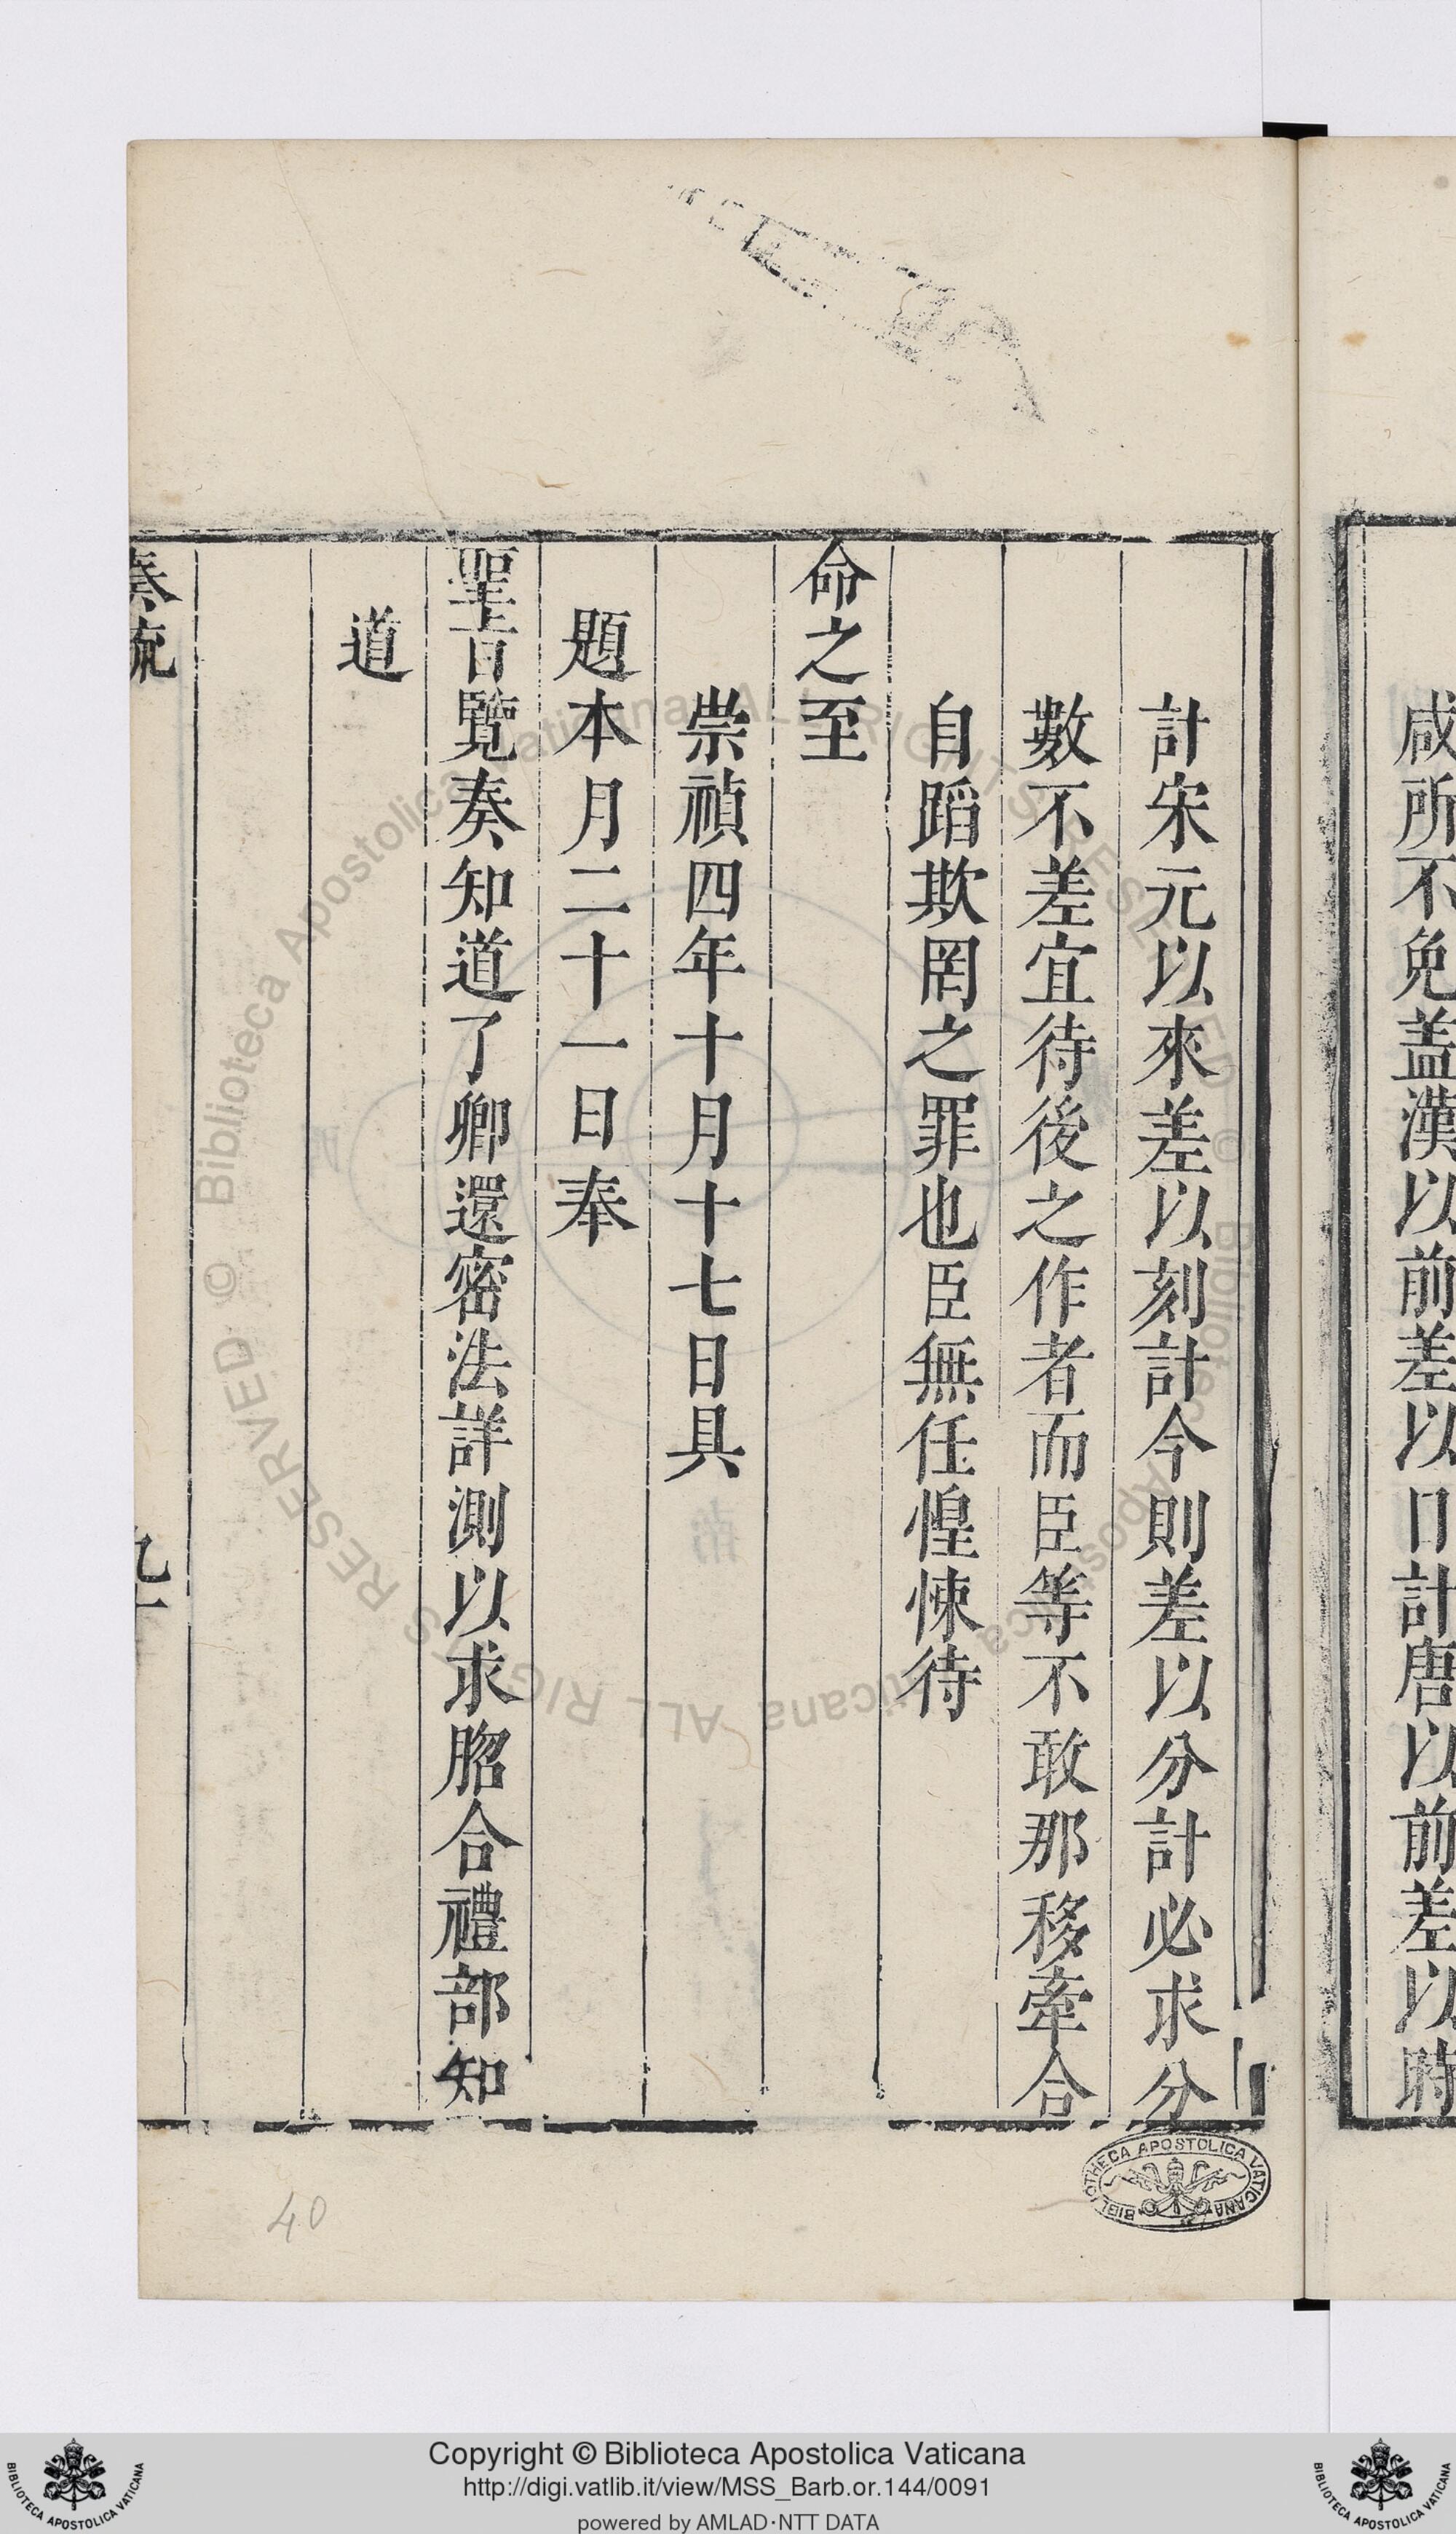 咸所不免蓋漢以前差以日計唐以前差以時
計宋元以來差以刻計今則差以分計必求分
數不差宜待後之作者而臣等不敢那移牽合
自蹈欺罔之罪也臣無任惶悚待
命之至
崇禎四年十月十七日具
題本月二十一日奉
聖旨覽奏知道了卿還密法詳測以求脗合禮部知
道
奏疏
40
BIBLIOTHECA APOSTOLICA VATICANA
Copyright © Biblioteca Apostolica Vaticana
http://digi.vatlib.it/view/MSS_Barb.or.144/0091
powered by AMLAD·NTT DATA
BIBLIOTECA APOSTOLICA VATICANA
BIBLIOTECA APOSTOLICA VATICANA
© Biblioteca Apostolica Vaticana ALL RIGHTS RESERVED © Biblioteca Apostolica Vaticana ALL RIGHTS RESERVED